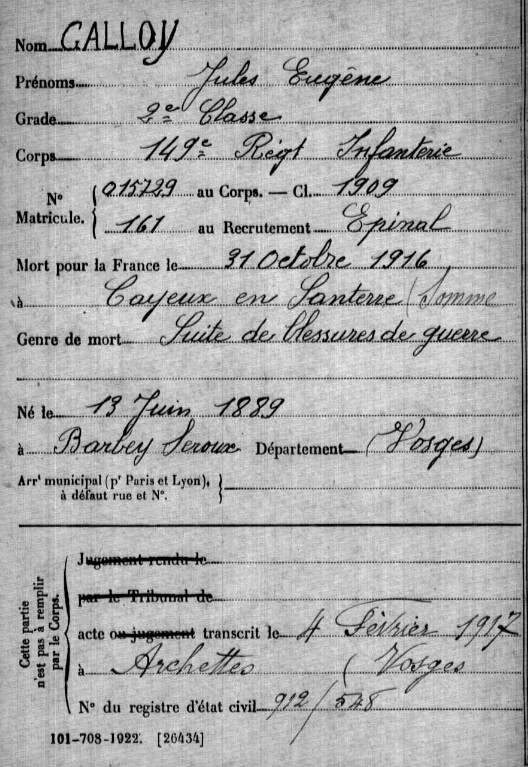 Nom GALLOY
Prénoms Jules Eugène
Grade 2e Classe
Corps 149e Régt Infanterie
N° Matricule. { 015729 au Corps. — Cl. 1909
161 au Recrutement Epinal
Mort pour la France le 31 Octobre 1916
à Cayeux en Santerre (Somme
Genre de mort Suite de blessures de guerre
Né le 13 Juin 1889
à Barbey Seroux Département (Vosges)
Arrt municipal (pr Paris et Lyon), à défaut rue et N°. }
Cette partie n'est pas à remplir par le Corps. {
Jugement rendu le
par le Tribunal de
acte ou jugement transcrit le 4 Février 1917
à Archettes (Vosges
N° du registre d'état civil 912/548
101-708-1922. [26434]